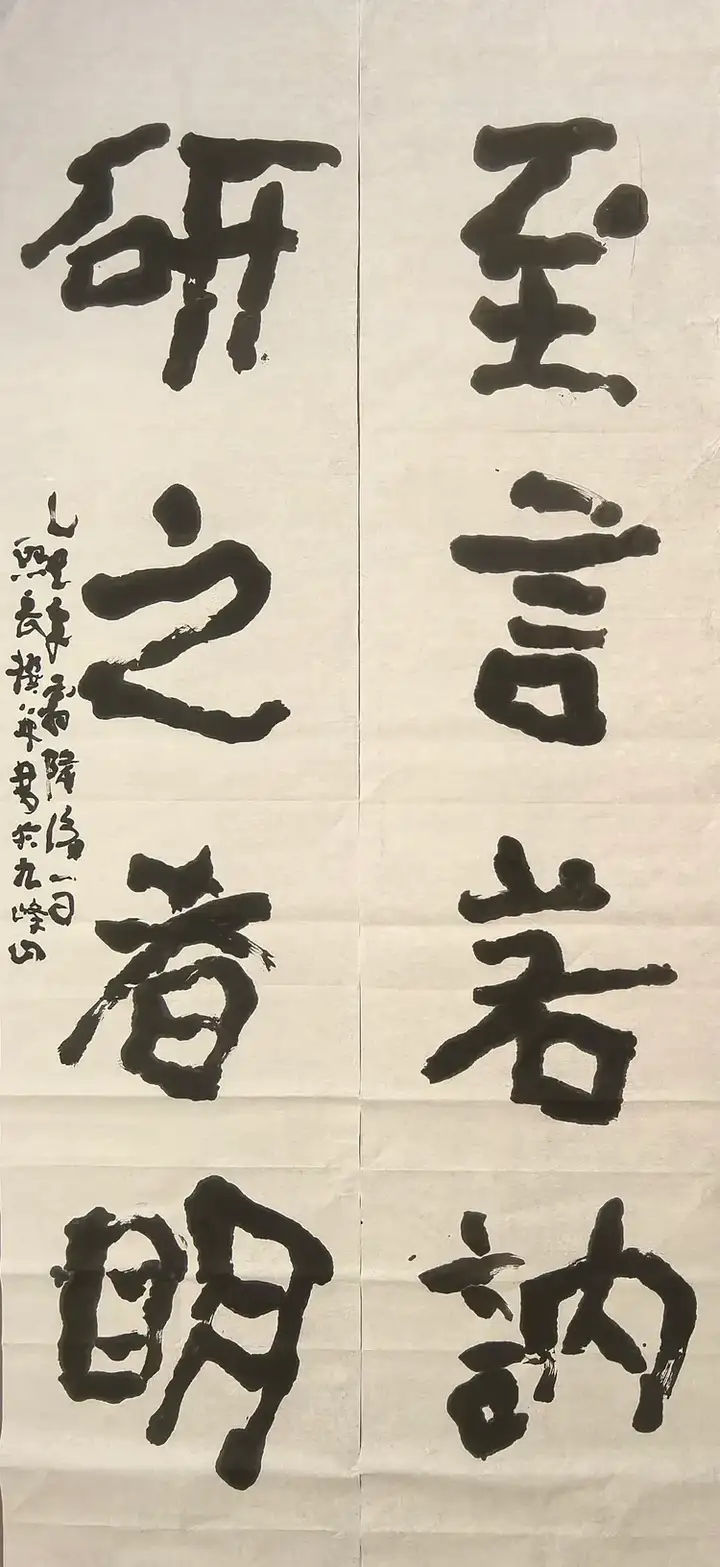 至言若訥
研之者明
乙巳年霜降後一日
熙長撰并書於九峰山